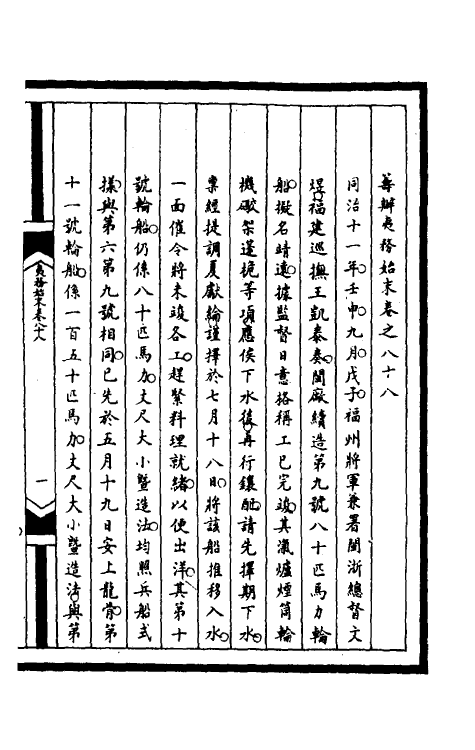 籌辦夷務始末卷之八十八
同治十一年壬申九月戊子福州將軍兼署閩浙總督文
煜福建巡撫王凱泰奏閩廠續造第九號八十匹馬力輪
船擬名靖遠據監督日意格稱工已完竣其滊爐煙筒輪
機礮架蓬桅等項應俟下水後再行鑲配請先擇期下水
稟經提調夏獻綸謹擇於七月十八日將該船推移入水
一面催令將未竣各工趕緊料理就緒以便出洋其第十
號輪船仍係八十匹馬力丈尺大小暨造法均照兵船式
樣與第六第九號相同已先於五月十九日安上龍骨第
十一號輪船係一百五十匹馬力丈尺大小暨造法與第
夷務始末卷八十八
一